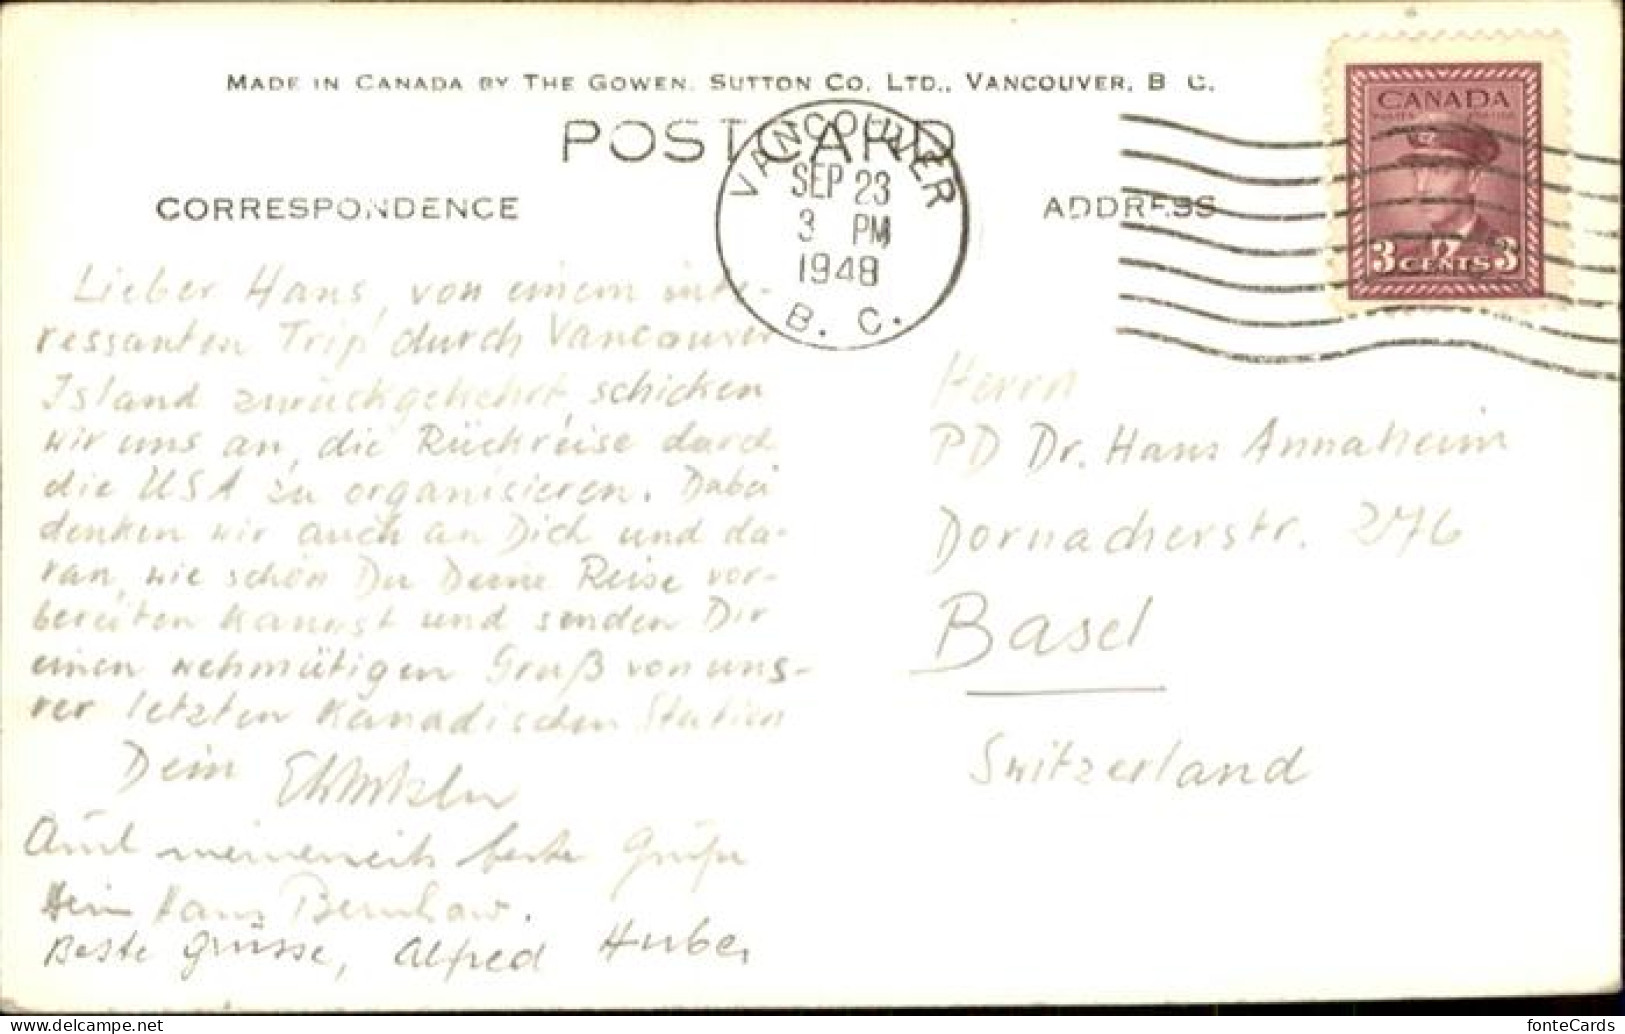 MADE IN CANADA BY THE GOWEN, SUTTON CO. LTD., VANCOUVER, B. C.
POST CARD
CORRESPONDENCE
ADDRESS
VANCOUVER
SEP 23
3 PM
1948
B. C.
CANADA
3 CENTS 3
Lieber Hans, von einem inte-
ressanten Trip durch Vancouver
Island zurückgekehrt, schicken
wir uns an, die Rückreise durch
die USA zu organisieren. Dabei
denken wir auch an Dich und da-
ran, wie schön Du Deine Reise vor-
bereiten kannst und senden Dir
einen wehmütigen Gruß von uns-
rer letzten kanadischen Station
Dein
Auch meinerseits beste Grüße
Dein Hans Bernhard.
Beste Grüsse, Alfred Huber
Herrn
PD Dr. Hans Annaheim
Dornacherstr. 276
Basel
Switzerland
fonteCards
www.delcampe.net